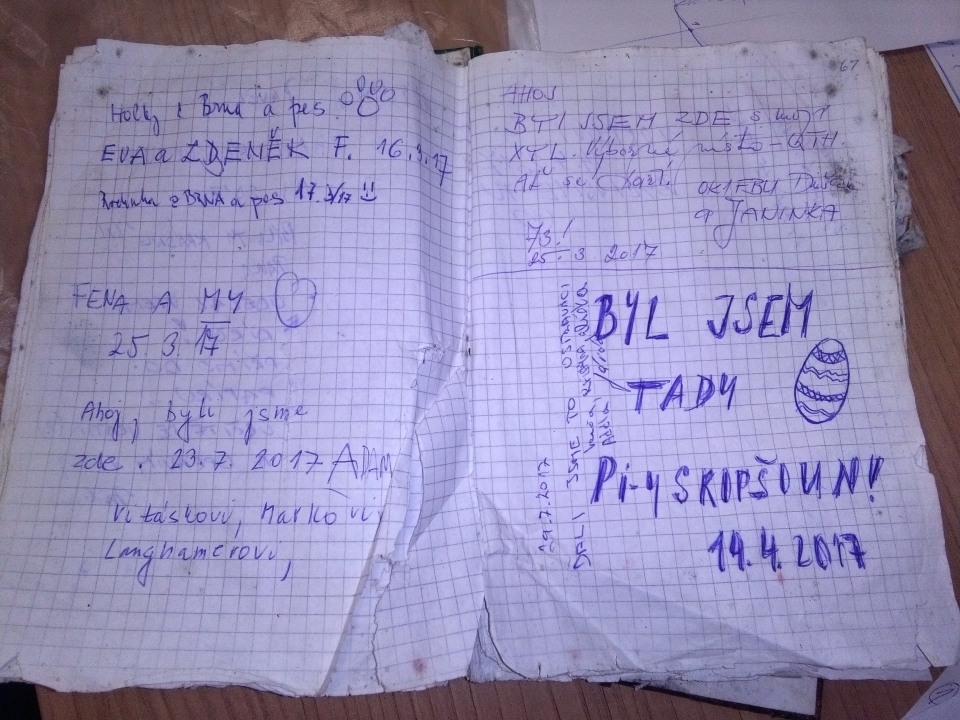 Holky z Brna a pes
EVA a ZDENĚK F. 16.3.17
Rodinka z BRNA a pes 17.3/17
FENA A MY
25.3.17
Ahoj, byli jsme
zde. 23.7.2017 ADAM
Vitáskovi, Markovi,
Langhamerovi,
67
AHOJ
BYL JSEM ZDE S MOJÍ
XYL. Výborné místo - QTH.
AŤ se daří!
OK1FBU
a JANINKA
73!
25.3 2017
29.7.2017
DALI JSME TO OSTRAVACI
BYL JSEM
TADY
Pi-y SKOPŠOUN!
14.4.2017